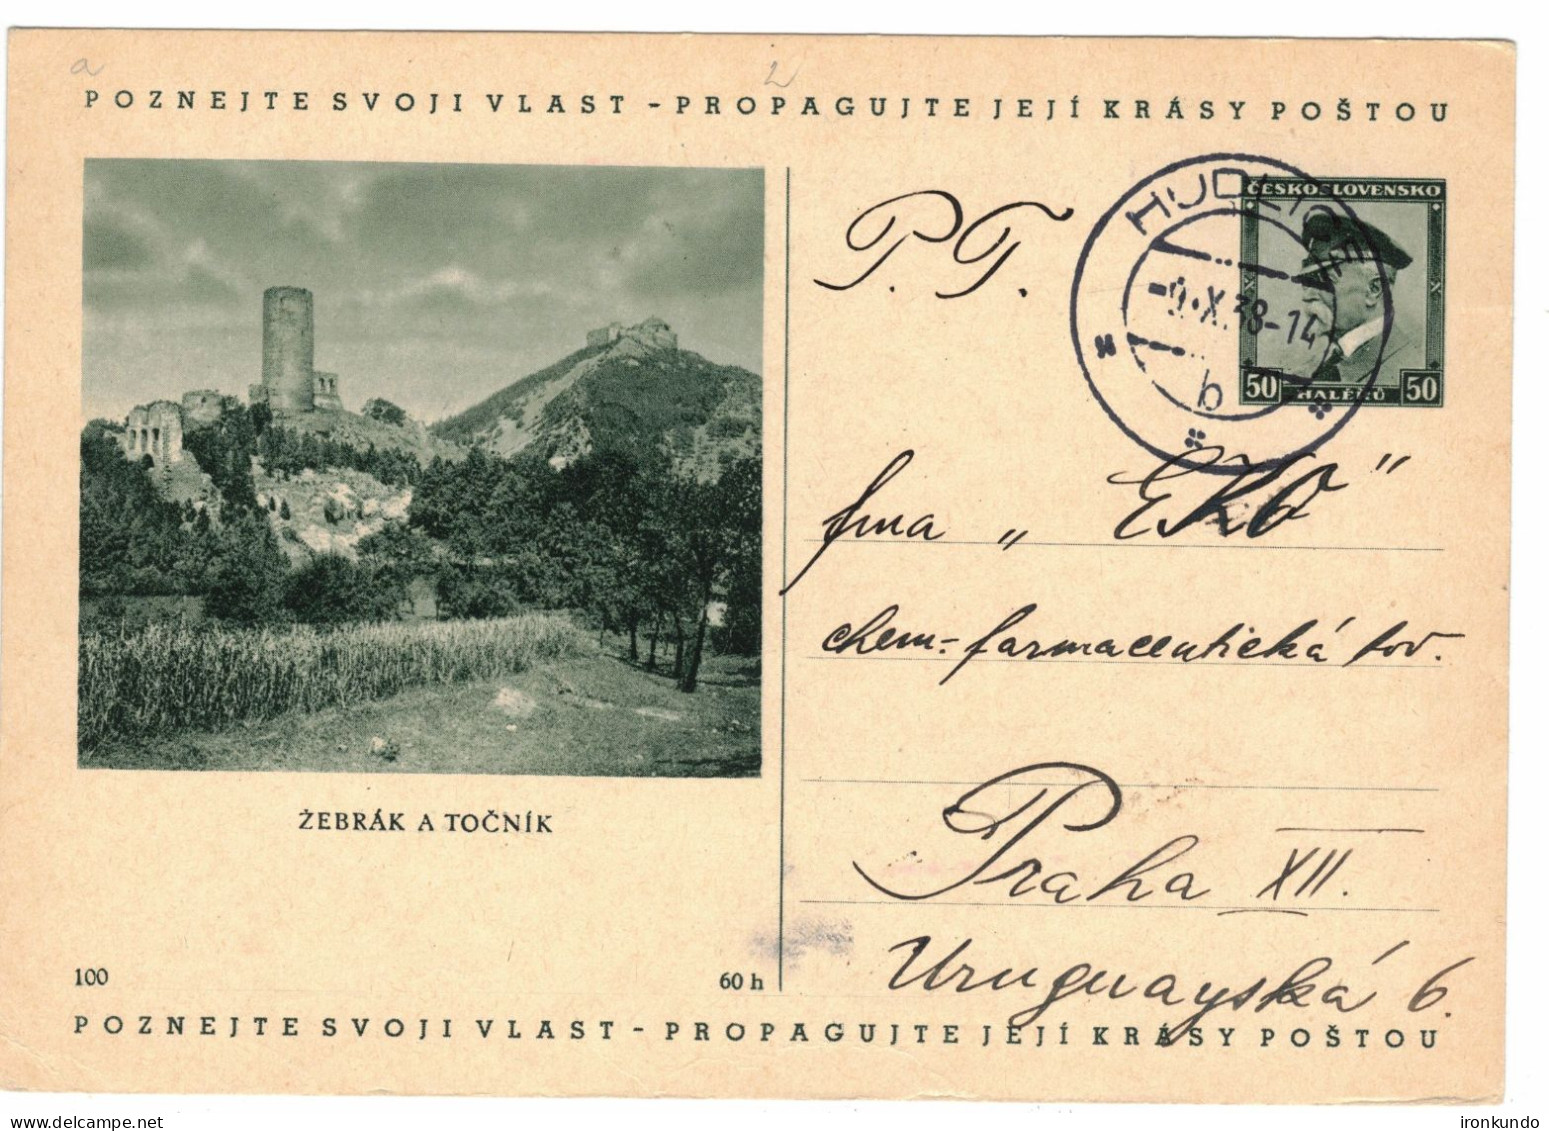 a 2
POZNEJTE SVOJI VLAST - PROPAGUJTE JEJÍ KRÁSY POŠTOU
ČESKOSLOVENSKO
50 HALÉŘŮ 50
HUDLICE
-9.X.38-14
b
P. T.
fma „ EKO "
chem.-farmaceutická tov.
Praha XII.
Uruguayská 6.
ŽEBRÁK A TOČNÍK
100
60 h
POZNEJTE SVOJI VLAST - PROPAGUJTE JEJÍ KRÁSY POŠTOU
ironkundo